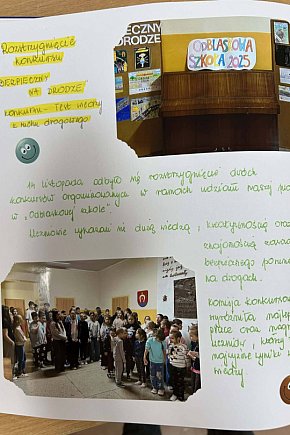 Rozstrzygnięcie
konkursu
"BEZPIECZNY
NA DRODZE"
konkursu - Test wiedzy
o ruchu drogowego
ECZNY
DRODZE
ODBLASKOWA
SZKOŁA 2025
14 listopada odbyło się rozstrzygnięcie dwóch
konkursów organizowanych w ramach udziału naszej
w „Odblaskowej szkole".
Uczniowie wykazali się dużą wiedzą, kreatywnością oraz
znajomością zasad
bezpiecznego
na drogach.
Komisja konkursowa
wyróżniła
prace oraz
uczniów, którzy
najwyższe wyniki
wiedzy